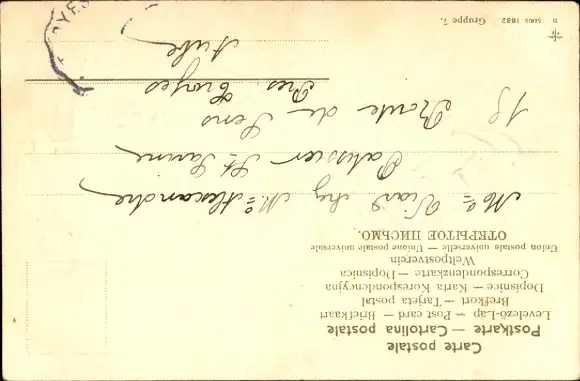 Carte postale
Postkarte — Cartolina postale
Levelező-Lap — Post card — Briefkaart
Brefkort — Tarjeta postal
Dopisnice — Karta Korespondencyjna
Correspondenzkarte — Dopisnica
Weltpostverein
Union postale universelle — Unione postale universale
ОТКРЫТОЕ ПИСЬМО.
Viard chez Mr Alexandre
Patissier St Savine
Route de Sens
Près Troyes
Aube
OYES
SERIE 1882 Gruppe 7.